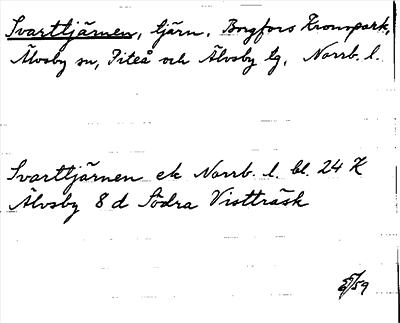 Svarttjärnen, tjärn, Bogfors Kronopark,
Älvsby sn, Piteå och Älvsby tg, Norrb. l.
Svarttjärnen ek Norrb. l. bl. 24 K
Älvsby 8 d Södra Vistträsk